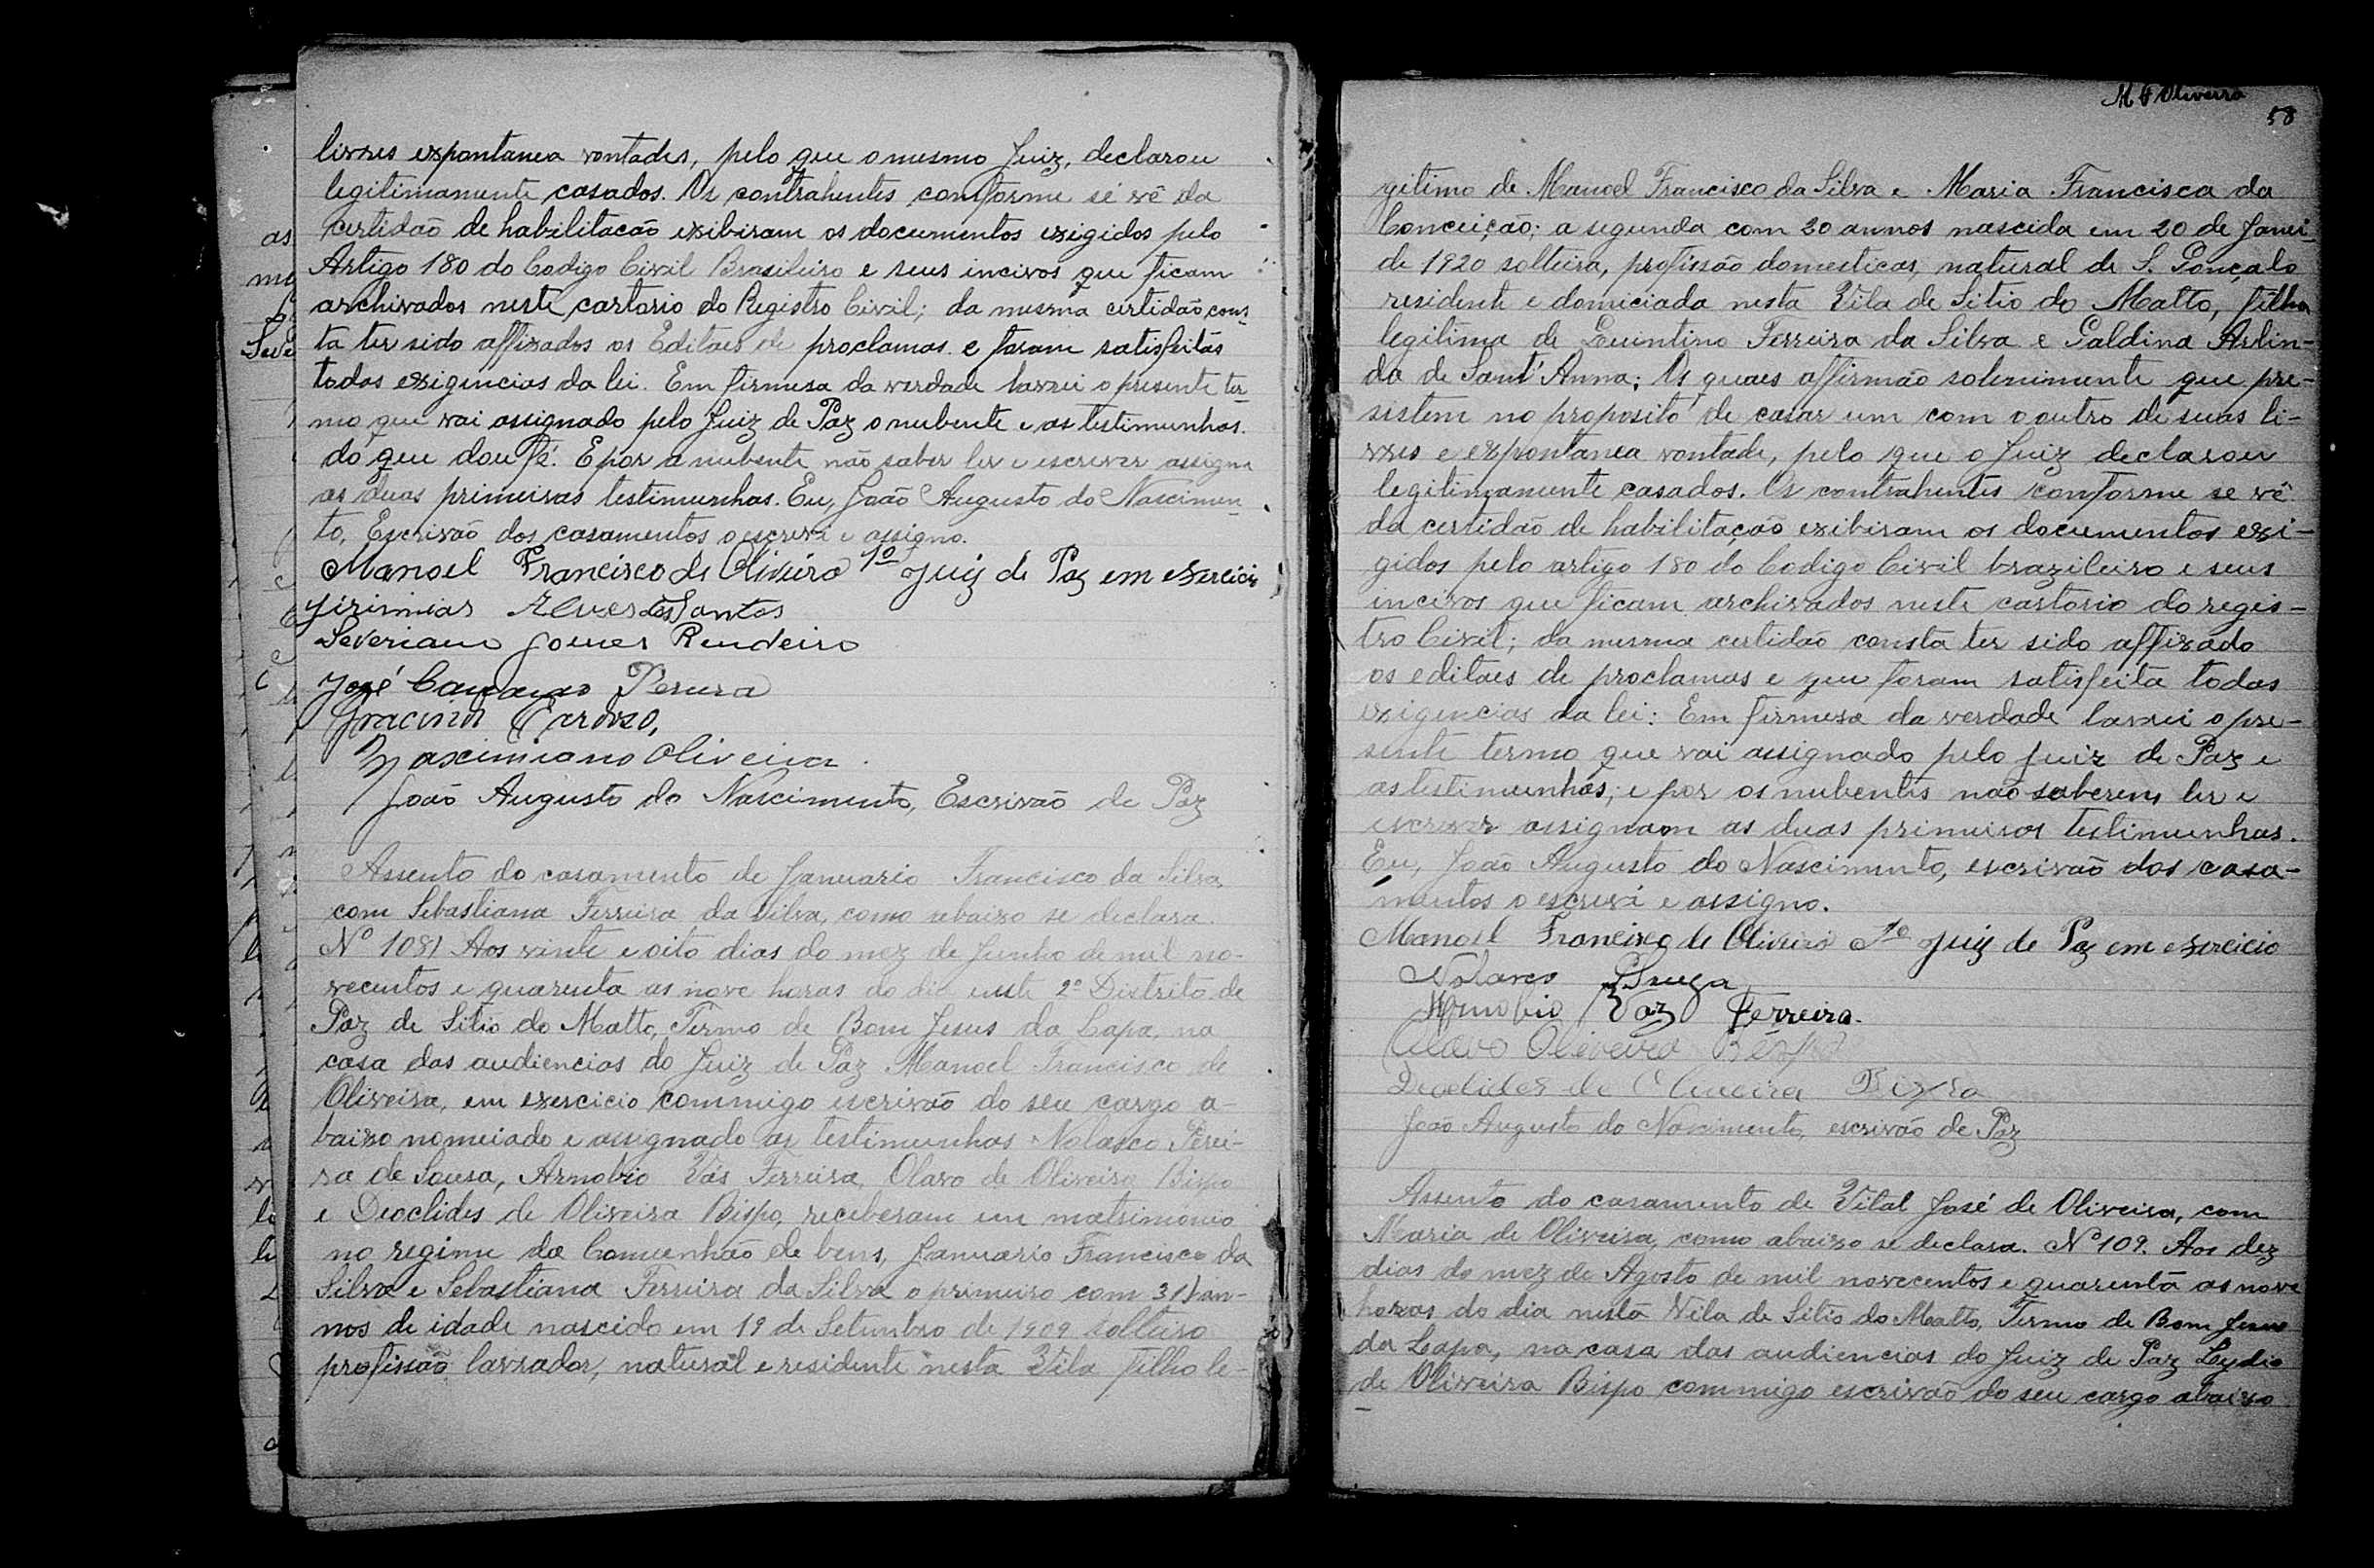 livres expontanea vontades, pelo que o mesmo Juiz, declarou
legitimamente casados. Os contrahentes conforme se vê da
certidão de habilitacão exibiram os documentos exigidos pelo
Artigo 180 do Codigo Civil Brasileiro e seus incivos que ficam
archivados neste cartorio do Registro Civil; da mesma certidão cons-
ta ter sido affixados os Editaes de proclamas e foram satisfeitas
todas exigencias da lei. Em firmesa da verdade lavrei o presente ter-
mo que vai assignado pelo Juiz de Paz o nubente e as testimunhas.
do que dou fé. E por a nubente não saber ler e escrever assigna
as duas primeiras testimunhas. Eu, João Augusto do Nascimen-
to, Escrivão dos casamentos o escrevi e assigno.
Manoel Francisco de Oliveira 1º Juiz de Paz em exercicio
Jirimias Alves dos Santos
Severiano Gomes Rendeiro
José Pereira
Cardoso,
Maximiano Oliveira
João Augusto do Nascimento, Escrivão de Paz
Assento do casamento de Januario Francisco da Silva
com Sebastiana Ferreira da Silva, como abaixo se declara.
Nº 108) Aos vinte e oito dias do mez de Junho de mil no-
vecentos e quarenta as nove horas do dia neste 2º Distrito de
Paz de Sitio do Matto, Termo de Bom Jesus da Lapa, na
casa das audiencias do Juiz de Paz Manoel Francisco de
Oliveira, em exercicio commigo escrivão do seu cargo a-
baixo nomeiado e assignado as testimunhas Nolasco Perei-
ra de Sousa, Arnobio Vás Ferreira, Olavo de Oliveira Bispo
e Deoclides de Oliveira Bispo, receberam em matrimonio
no regime da Comunhão de bens, Januario Francisco da
Silva e Sebastiana Ferreira da Silva o primeiro com 31) an-
nos de idade nascido em 19 de Setembro de 1909 solteiro
profissão lavrador, natural e residente nesta Vila filho le-
M F Oliveira
58
gitimo de Manoel Francisco da Silva e Maria Francisca da
Conceição; a segunda com 20 annos nascida em 20 de Janei-
de 1920 solteira, profissão domesticas, natural de S. Gonçalo
residente e domiciada nesta Vila de Sitio do Matto, filha
legitima de Quintino Ferreira da Silva e Galdina Arlin-
da de Sant'Anna; Os quaes affirmão solenimente que pre-
sistem no proposito de casar um com o outro de suas li-
vres e expontanea vontade, pelo que o Juiz declarou
legitimamente casados. Os contrahentes conforme se vê
da certidão de habilitação exibiram os documentos exi-
gidos pelo artigo 180 do Codigo Civil brazileiro e seus
incivos que ficam archivados neste cartorio do regis-
tro Civil; da mesma certidão consta ter sido affixado
os editaes de proclamas e que foram satisfeita todas
exigencias da lei: Em firmesa da verdade lavrei o pre-
sente termo que vai assignado pelo juiz de Paz e
as testimunhas; e por os nubentes não saberem ler e
escrever assignam as duas primeiras testimunhas.
Eu, João Augusto do Nascimento, escrivão dos casa-
mentos o escrevi e assigno.
Manoel Francisco de Oliveira 1º Juiz de Paz em exercicio
Nolasco
Arnobio Vaz Ferreira.
Olavo Oliveira Bispo
Deoclides de Oliveira Bispo
João Augusto do Nascimento, escrivão de Paz
Assento do casamento de Vital José de Oliveira, com
Maria de Oliveira, como abaixo se declara. Nº 109. Aos dez
dias do mez de Agosto de mil novecentos e quarenta as nove
horas do dia nesta Vila de Sitio do Matto, Termo de Bom Jesus
da Lapa, na casa das audiencias do Juiz de Paz Lydio
de Oliveira Bispo commigo escrivão do seu cargo abaixo